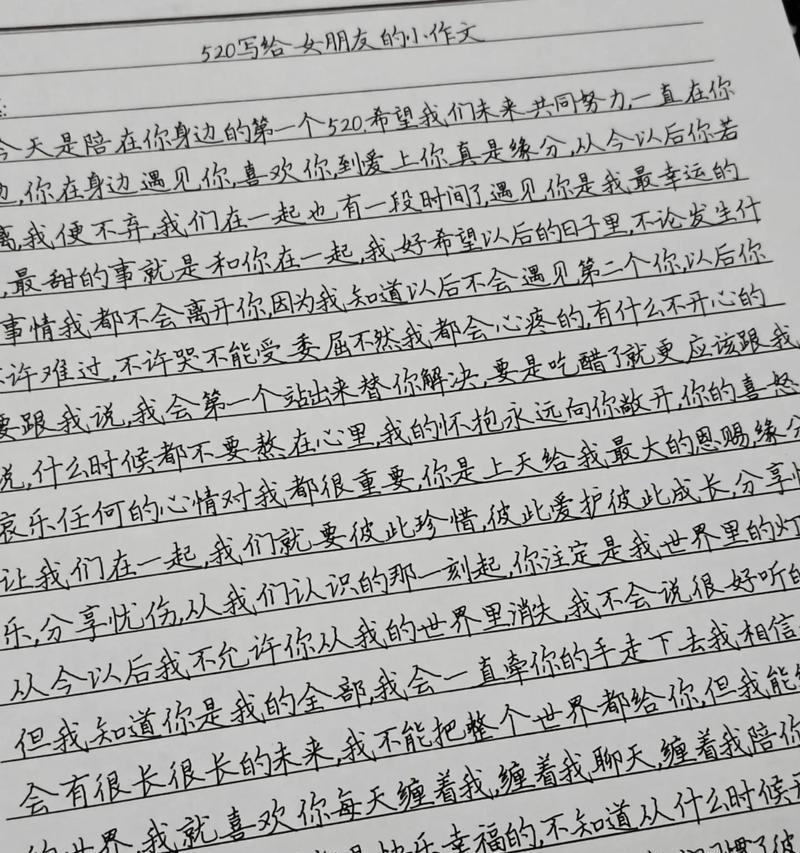 520写给女朋友的小作文
今天是陪在你身边的第一个520.希望我们未来共同努力,一直在你
边,你在身边遇见你,喜欢你,到爱上你真是缘分,从今以后你若
离,我便不弃,我们在一起也有一段时间了,遇见你是我最幸运的
,最甜的事就是和你在一起,我好希望以后的日子里,不论发生什
事情我都不会离开你,因为我知道以后不会遇见第二个你,以后你
不许难过,不许哭不能受委屈不然我都会心疼的,有什么不开心的
要跟我说,我会第一个站出来替你解决,要是吃醋了就更应该跟我
说,什么时候都不要熬在心里,我的怀抱永远向你敞开,你的喜怒
哀乐任何的心情对我都很重要,你是上天给我最大的恩赐,缘分
让我们在一起,我们就要彼此珍惜,彼此爱护彼此成长,分享
乐,分享忧伤,从我们认识的那一刻起,你注定是我世界里的灯
从今以后我不允许你从我的世界里消失,我不会说很好听的
但我知道你是我的全部,我会一直牵你的手走下去我相信
会有很长很长的未来,我不能把整个世界都给你,但我能
的世界,我就喜欢你每天缠着我,缠着我聊天,缠着我陪你
快乐幸福的,不知道从什么时候开
习惯了彼